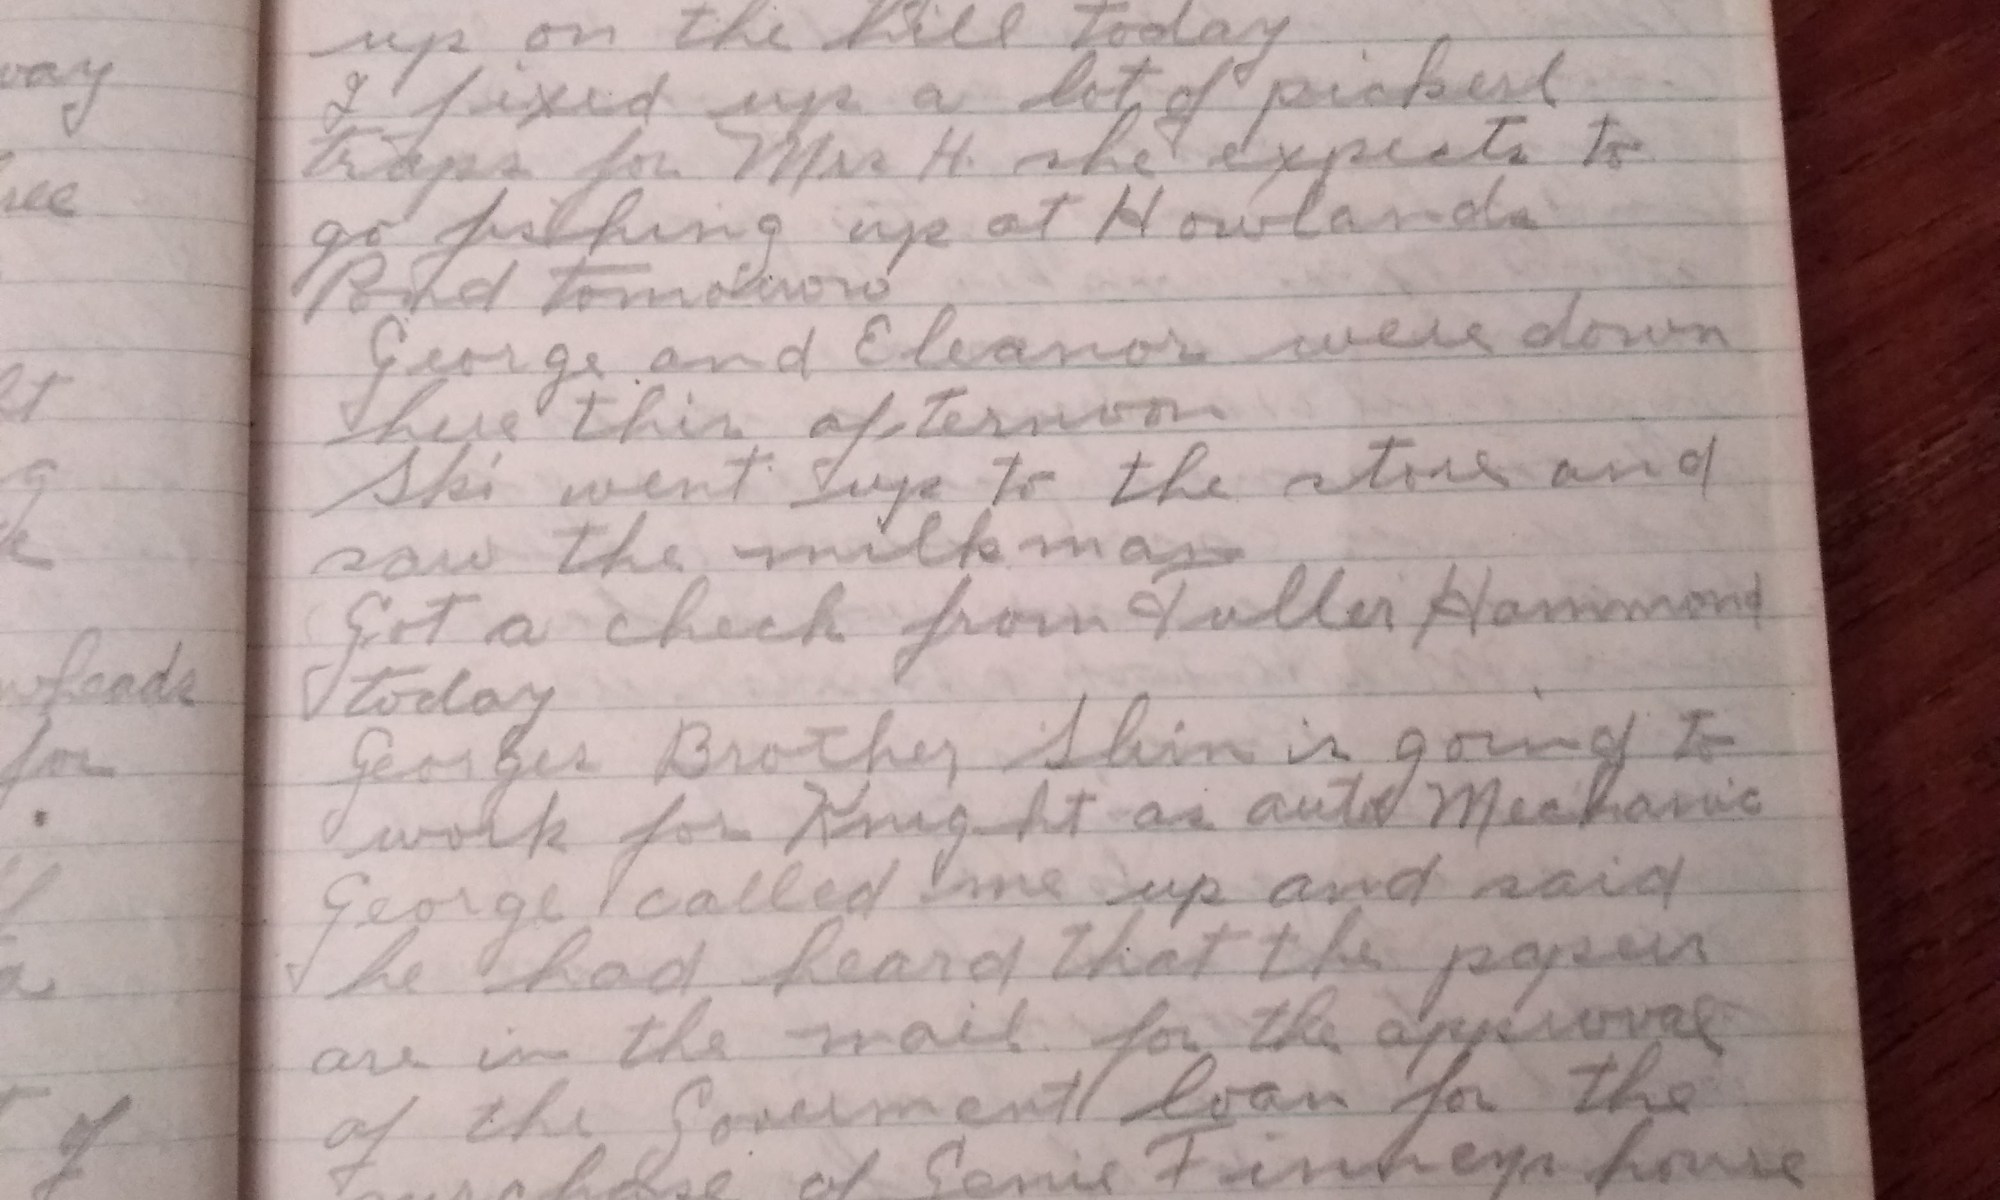 up on the hill today
I fixed up a lot of pickerl
traps for Mrs H. she expects to
go fishing up at Howlands
Pond tomorrow
George and Eleanor were down
here this afternoon
Ski went up to the store and
saw the milkman
Got a check from Fuller Hammond
today
Georges Brother is going to
work for Knight as auto Mechanic
George called me up and said
he had heard that the papers
are in the mail for the approval
of the Goverment loan for the
purchase of Genie Finneys house
way
heads
for
of